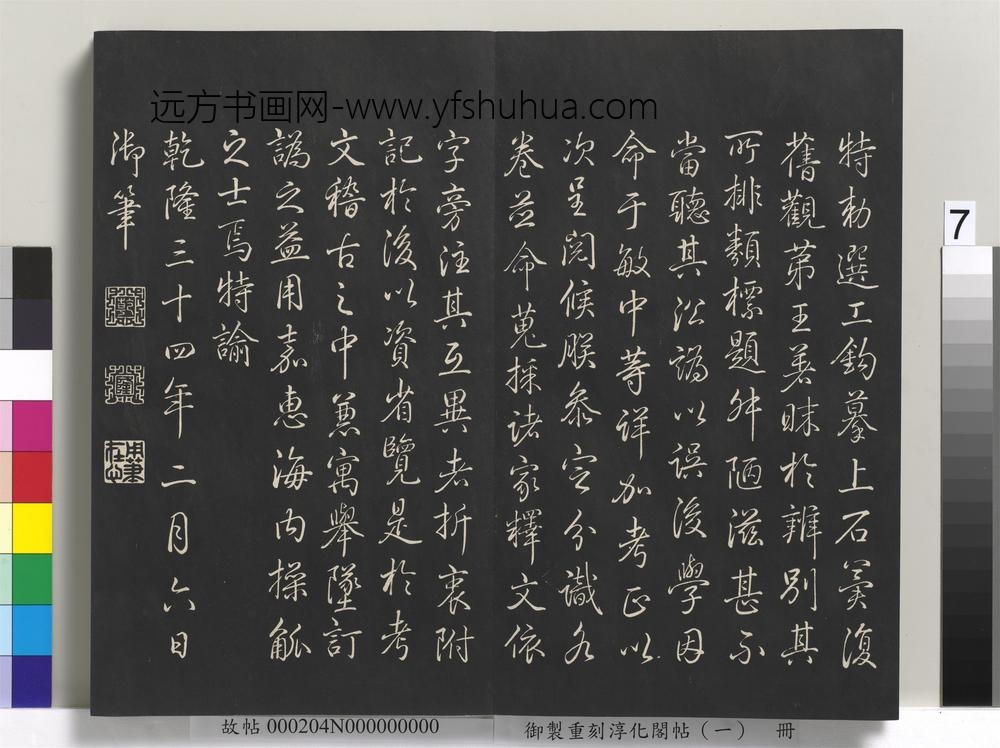 远方书画网-www.yfshuhua.com
特勅選工鈎摹上石冀復
舊觀第王著昧於辨別其
所排類標題舛陋滋甚不
當聽其沿譌以誤後學因
命于敏中等詳加考正以
次呈閱候朕叅定分識各
卷並命蒐採諸家釋文依
字旁注其互異者折衷附
記於後以資省覽是於考
文稽古之中兼寓舉墜訂
譌之益用嘉惠海内操觚
之士焉特諭
乾隆三十四年二月六日
御筆
用筆在心
7
故帖 000204N000000000
御製重刻淳化閣帖（一） 冊